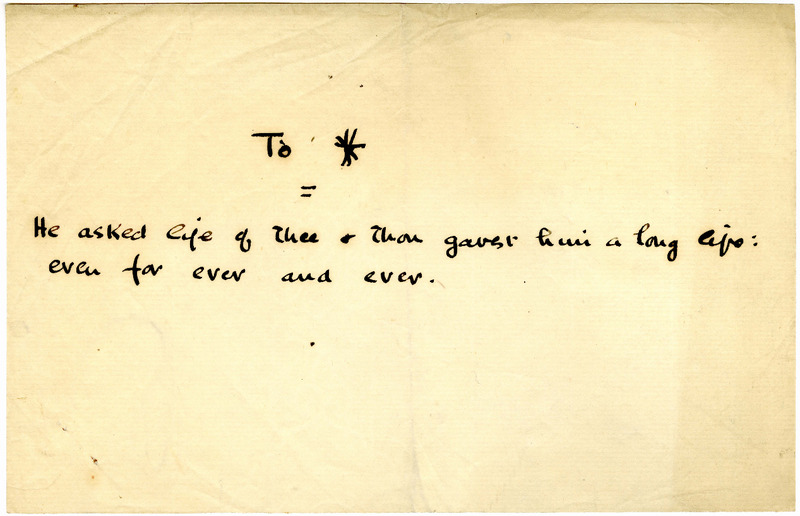 To *
=
He asked life of Thee & Thou gavest him a long life:
even for ever and ever.